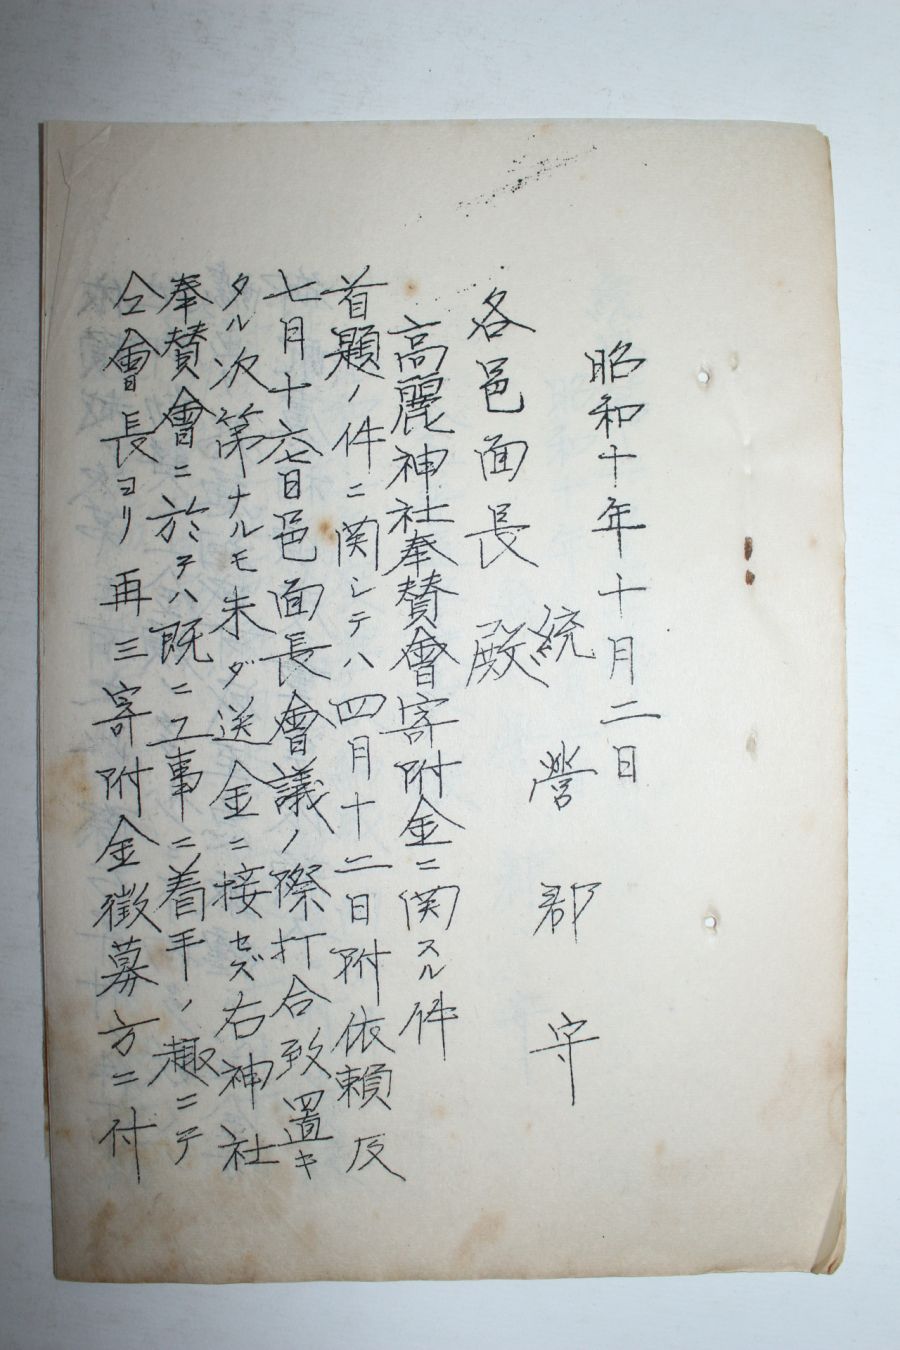 昭和十年十月二日
統營郡守
各邑面長殿
高麗神社奉賛會寄附金ニ関スル件
首題ノ件ニ関シテハ四月十二日附依頼及
七月十六七日邑面長會議ノ際打合致置キ
タル次第ナルモ未ダ送金ニ接セズ右神社
奉賛會ニ於テハ既ニ工事ニ着手ノ趣ニテ
仝會長ヨリ再三寄附金徴募方ニ付